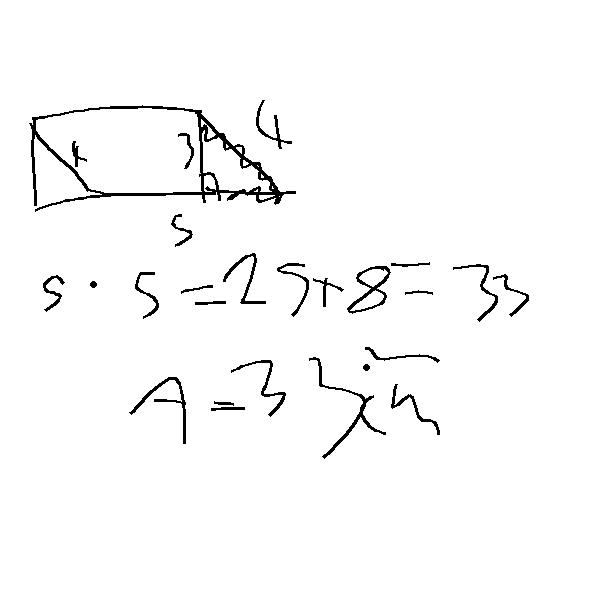 4
3
5
5 · 5 = 25 + 8 = 33
A = 33 in